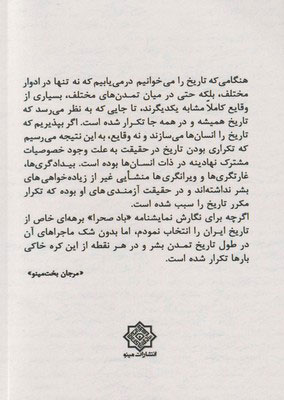 هنگامی‌که تاریخ را می‌خوانیم درمی‌یابیم که نه تنها در ادوار
مختلف، بلکه حتی در میان تمدن‌های مختلف، بسیاری از
وقایع کاملاً مشابه یکدیگرند، تا جایی که به نظر می‌رسد که
تاریخ همیشه و در همه جا تکرار شده است. اگر بپذیریم که
تاریخ را انسان‌ها می‌سازند و نه وقایع، به این نتیجه می‌رسیم
که تکراری بودن تاریخ در حقیقت به علت وجود خصوصیات
مشترک نهادینه در ذات انسان‌ها بوده است. بیدادگری‌ها،
غارتگری‌ها و ویرانگری‌ها منشأیی غیر از زیاده‌خواهی‌های
بشر نداشته‌اند و در حقیقت آزمندی‌های او بوده که تکرار
مکرر تاریخ را سبب شده است.
اگرچه برای نگارش نمایشنامه «باد صحرا» برهه‌ای خاص از
تاریخ ایران را انتخاب نمودم، اما بدون شک ماجراهای آن
در طول تاریخ تمدن بشر و در هر نقطه از این کره خاکی
بارها تکرار شده است.
«مرجان بخت‌مینو»
انتشارات مینو